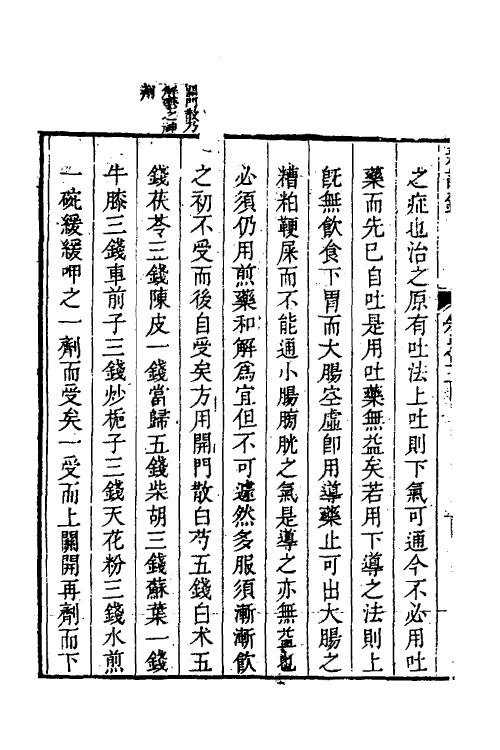 開門散乃
解鬱之神
劑
之症也治之原有吐法上吐則下氣可通今不必用吐
藥而先已自吐是用吐藥無益矣若用下導之法則上
旣無飲食下胃而大腸空虛卽用導藥止可出大腸之
糟粕鞕屎而不能通小腸膀胱之氣是導之亦無益也
必須仍用煎藥和解爲宜但不可遽然多服須漸漸飲
之初不受而後自受矣方用開門散白芍五錢白术五
錢茯苓三錢陳皮一錢當歸五錢柴胡三錢蘇葉一錢
牛膝三錢車前子三錢炒梔子三錢天花粉三錢水煎
一碗緩緩呷之一劑而受矣一受而上關開再劑而下